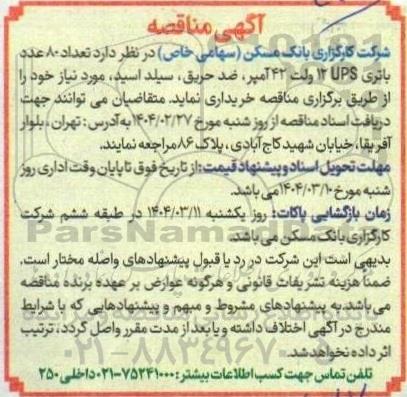 آگهی مناقصه
شرکت کارگزاری بانک مسکن (سهامی خاص) در نظر دارد تعداد ۸۰ عدد
باتری UPS ۱۲ ولت ۴۲ آمپر، ضد حریق، سیلد اسید، مورد نیاز خود را
از طریق برگزاری مناقصه خریداری نماید. متقاضیان می توانند جهت
دریافت اسناد مناقصه از روز شنبه مورخ ۱۴۰۴/۰۲/۲۷ به آدرس: تهران، بلوار
آفریقا، خیابان شهید کاج آبادی، پلاک ۸۶ مراجعه نمایند.
مهلت تحویل اسناد و پیشنهاد قیمت: از تاریخ فوق تا پایان وقت اداری روز
شنبه مورخ ۱۴۰۴/۰۳/۱۰ می باشد.
زمان بازگشایی پاکات: روز یکشنبه ۱۴۰۴/۰۳/۱۱ در طبقه ششم شرکت
کارگزاری بانک مسکن می باشد.
بدیهی است این شرکت در رد یا قبول پیشنهادهای واصله مختار است.
ضمناً هزینه تشریفات قانونی و هرگونه عوارض بر عهده برنده مناقصه
می باشد. به پیشنهادهای مشروط و مبهم و پیشنهادهایی که با شرایط
مندرج در آگهی اختلاف داشته و یا بعد از مدت مقرر واصل گردد، ترتیب
اثر داده نخواهد شد.
تلفن تماس جهت کسب اطلاعات بیشتر: ۷۵۲۴۱۰۰۰-۰۲۱ داخلی ۲۵۰
ParsNamadData
۰۲۱-۸۸۳۴۹۶۷۰